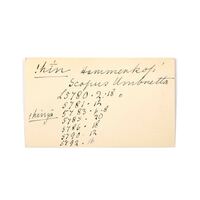 Skin Hammerkop
Scopus Umbretta
£5780 . 2 . 18
5781 . 12
5783 . 6 . 8
5785 . 20
5786 . 18
5790 . 12
5792 . 16